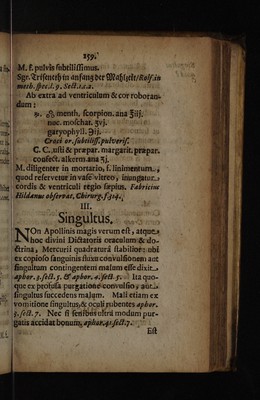 159.
M. f. pulvis subtilissimus.
Sgr. Triseneth in anfang der Mahlzeit/ Rulf. in
meth. spec. l. 9. Sect. 1. c. 2.
Ab extra ad ventriculum & cor roboran-
dum:
menth. scorpion. ana
noc. moschat.
garyophyll.
Croci or. subtiliss. pulveris.
C. C. usti & præpar. margarit. præpar.
confect. alkerm. ana
M. diligenter in mortario, f. linimentum,
quod reservetur in vase vitreo, inungatur
cordis & ventriculi regio sæpius. Fabricius
Hildanus observat. Chirurg. f. 314.
III.
Singultus.
NOn Apollinis magis verum est, atque
hoc divini Dictatoris oraculum & do-
ctrina, Mercurii quadraturâ stabilior; ubi
ex copioso sanguinis fluxu convulsionem aut
singultum contingentem malum esse dixit.
aphor. 3. sect. 5. & aphor. 4. sect. 5. Ita quo-
que ex profusa purgatione convulsio, aut
singultus succedens malum. Mali etiam ex
vomitione singultus, & oculi rubentes aphor.
3. sect. 7. Nec si senibus ultra modum pur-
gatis accidat bonum, aphor. 41. sect. 7.
Est